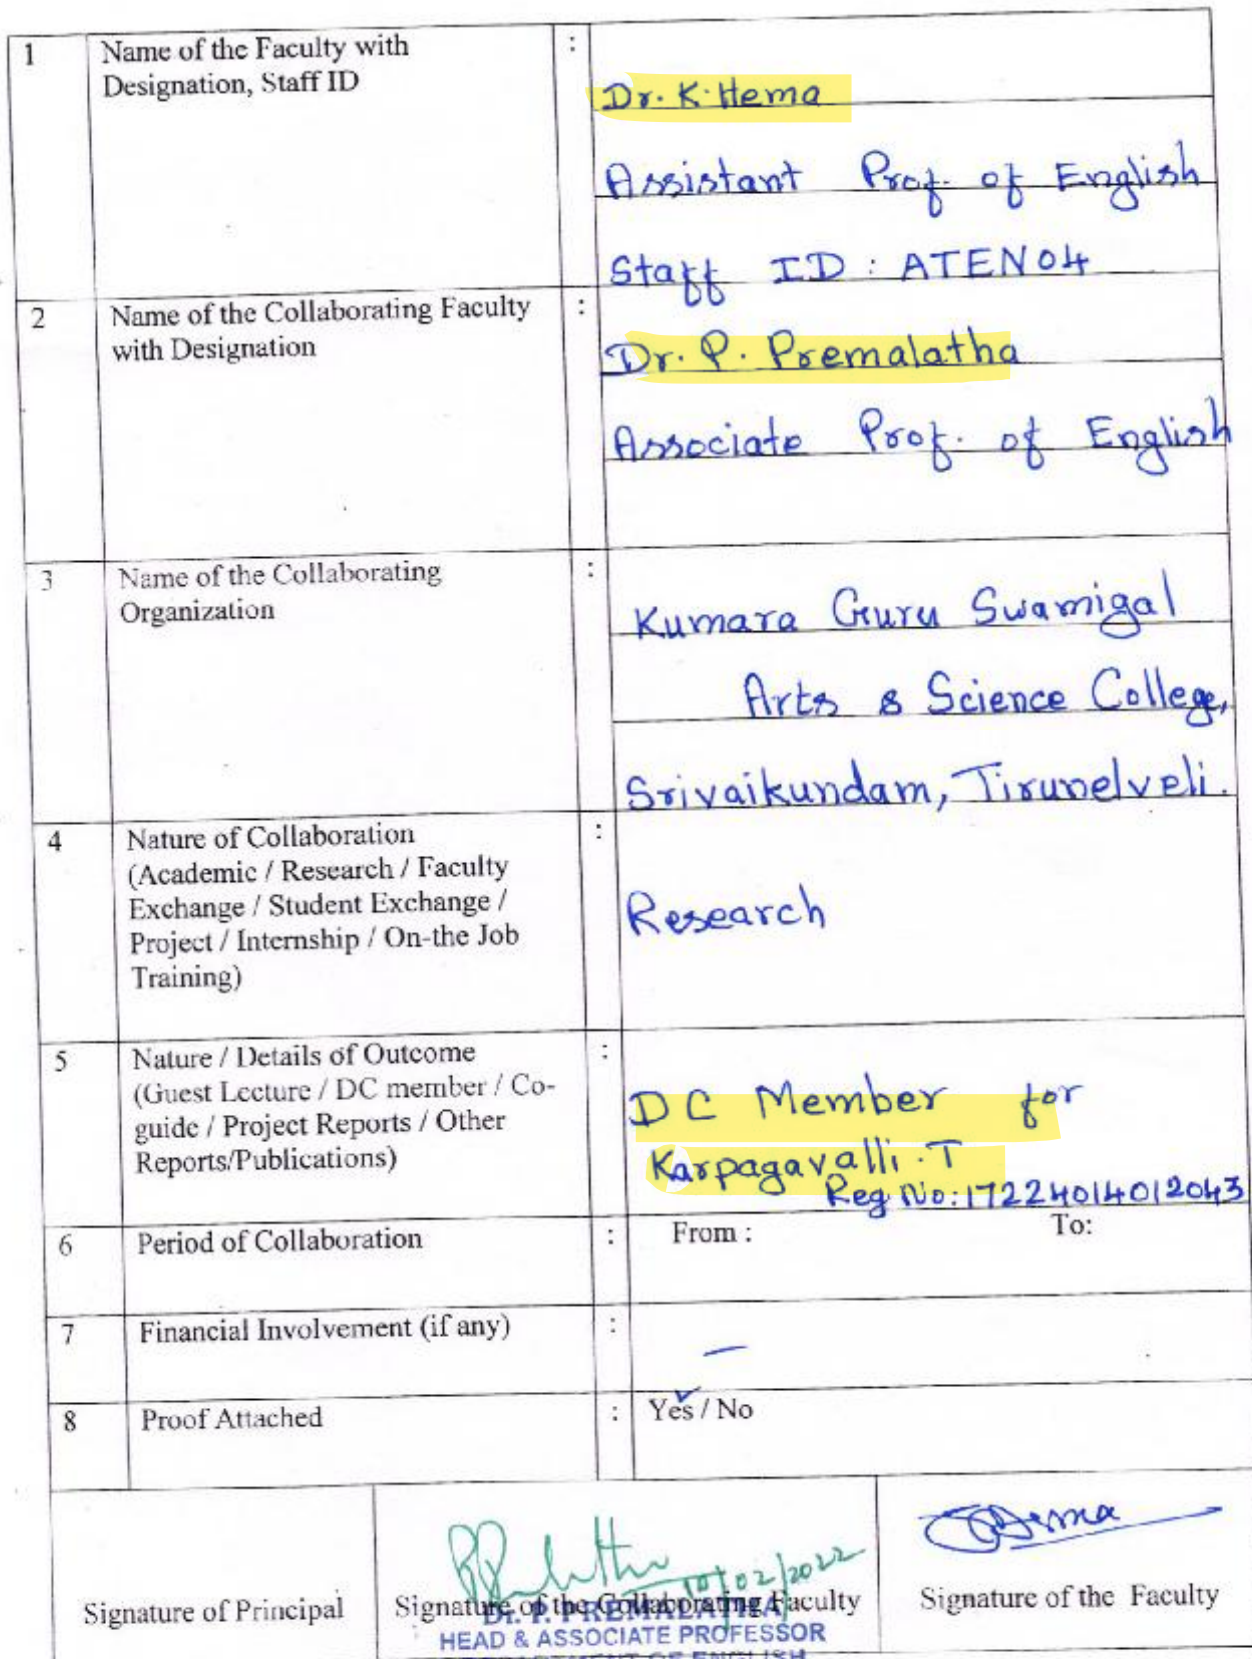 1
Name of the Faculty with
Designation, Staff ID
:
Dr. K. Hema
Assistant Prof. of English
Staff ID : ATEN04
2
Name of the Collaborating Faculty
with Designation
:
Dr. P. Premalatha
Associate Prof. of English
3
Name of the Collaborating
Organization
:
Kumara Guru Swamigal
Arts & Science College,
Srivaikundam, Tirunelveli.
4
Nature of Collaboration
(Academic / Research / Faculty
Exchange / Student Exchange /
Project / Internship / On-the Job
Training)
:
Research
5
Nature / Details of Outcome
(Guest Lecture / DC member / Co-
guide / Project Reports / Other
Reports/Publications)
:
DC Member for
Karpagavalli. T
Reg No: 17224014012043
6
Period of Collaboration
:
From : To:
7
Financial Involvement (if any)
:
–
8
Proof Attached
:
Yes / No
Signature of Principal
10/02/2022
Signature of the Collaborating Faculty
Dr. P. PREMALATHA
HEAD & ASSOCIATE PROFESSOR
DEPARTMENT OF ENGLISH
Hema
Signature of the Faculty